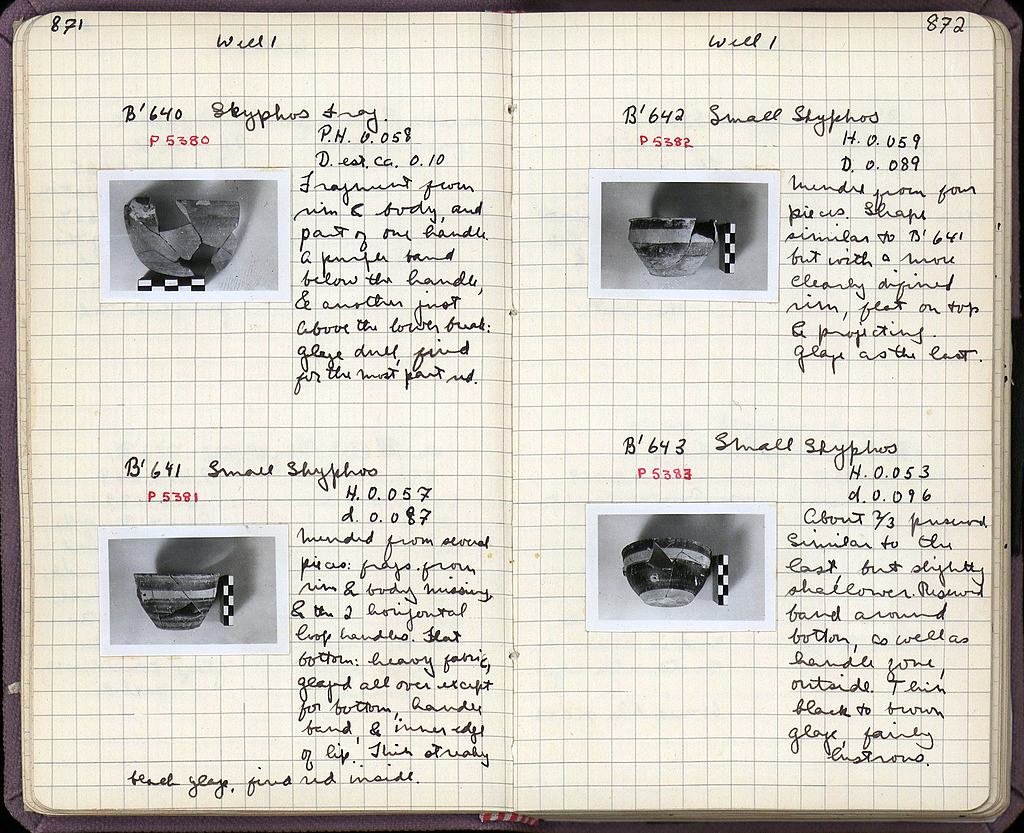 871
Well 1
B' 640 Skyphos frag.
P 5380
P.H. 0.058
D. est. ca. 0.10
Fragment from
rim & body, and
part of one handle.
A purple band
below the handle,
& another just
above the lower break:
glaze dull, fired
for the most part red.
B' 641 Small Skyphos
P 5381
H. 0.057
d. 0.087
Mended from several
pieces: frags. from
rim & body missing,
& the 2 horizontal
loop handles. Flat
bottom: heavy fabric,
glazed all over except
for bottom, handle
band, & inner edge
of lip. Thin streaky
black glaze, fired red inside.
872
Well 1
B' 642 Small Skyphos
P 5382
H. 0.059
D. 0.089
Mended from four
pieces. Shape
similar to B' 641
but with a more
clearly defined
rim, flat on top
& projecting.
Glaze as the last.
B' 643 Small Skyphos
P 5383
H. 0.053
d. 0.096
About 2/3 preserved.
Similar to the
last, but slightly
shallower. Reserved
band around
bottom, as well as
handle zone,
outside. Thin
black to brown
glaze, fairly
lustrous.